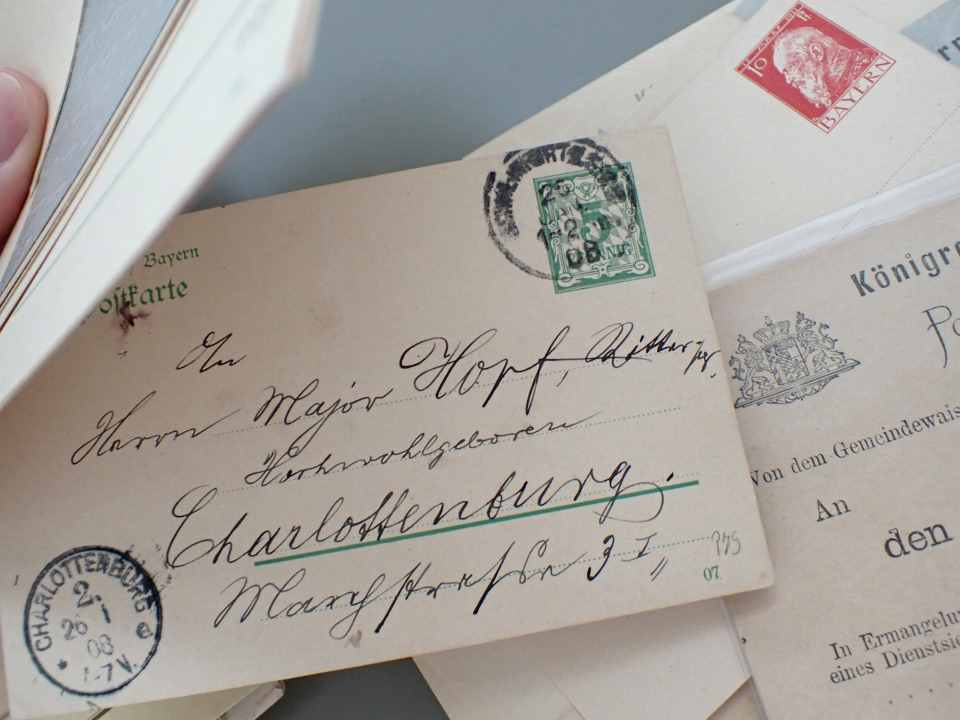 10
BAYERN
Bayern
Postkarte
25
1-2
08
5
An
Herrn Major Hopf, Ritter pp.
Hochwohlgeboren
Charlottenburg.
Marchstrasse 3 I
07
CHARLOTTENBURG
2
26
08
1-7V.
Königre
Von dem Gemeindewais
An
den
In Ermangelun
eines Dienstsie